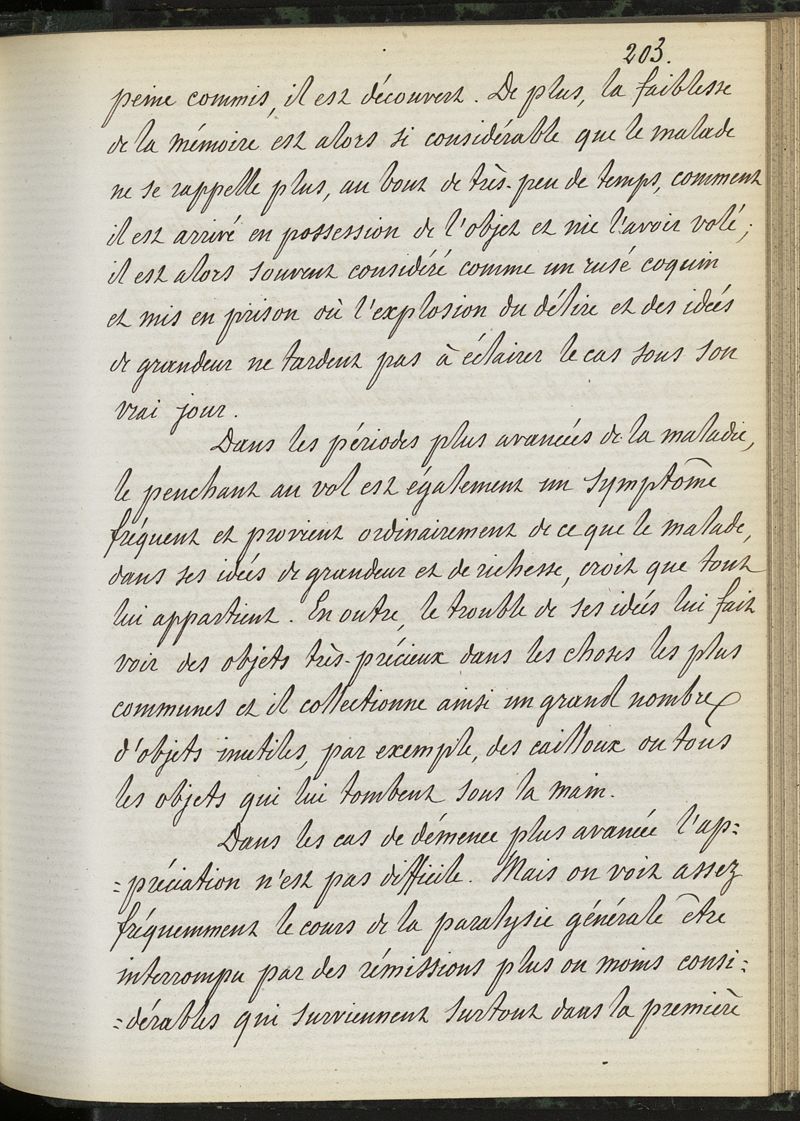 203.
peine commis, il est découvert. De plus, la faiblesse
de la mémoire est alors si considérable que le malade
ne se rappelle plus, au bout de très-peu de temps, comment
il est arrivé en possession de l'objet et nie l'avoir volé;
il est alors souvent considéré comme un rusé coquin
et mis en prison où l'explosion du délire et des idées
de grandeur ne tardent pas à éclairer le cas sous son
vrai jour.
Dans les périodes plus avancées de la maladie,
le penchant au vol est également un symptôme
fréquent et provient ordinairement de ce que le malade,
dans ses idées de grandeur et de richesse, croit que tout
lui appartient. En outre, le trouble de ses idées lui fait
voir des objets très-précieux dans les choses les plus
communes et il collectionne ainsi un grand nombre
d'objets inutiles, par exemple, des cailloux ou tous
les objets qui lui tombent sous la main.
Dans les cas de démence plus avancée l'ap=
=préciation n'est pas difficile. Mais on voit assez
fréquemment le cours de la paralysie générale être
interrompu par des rémissions plus ou moins consi=
=dérables qui surviennent surtout dans la première